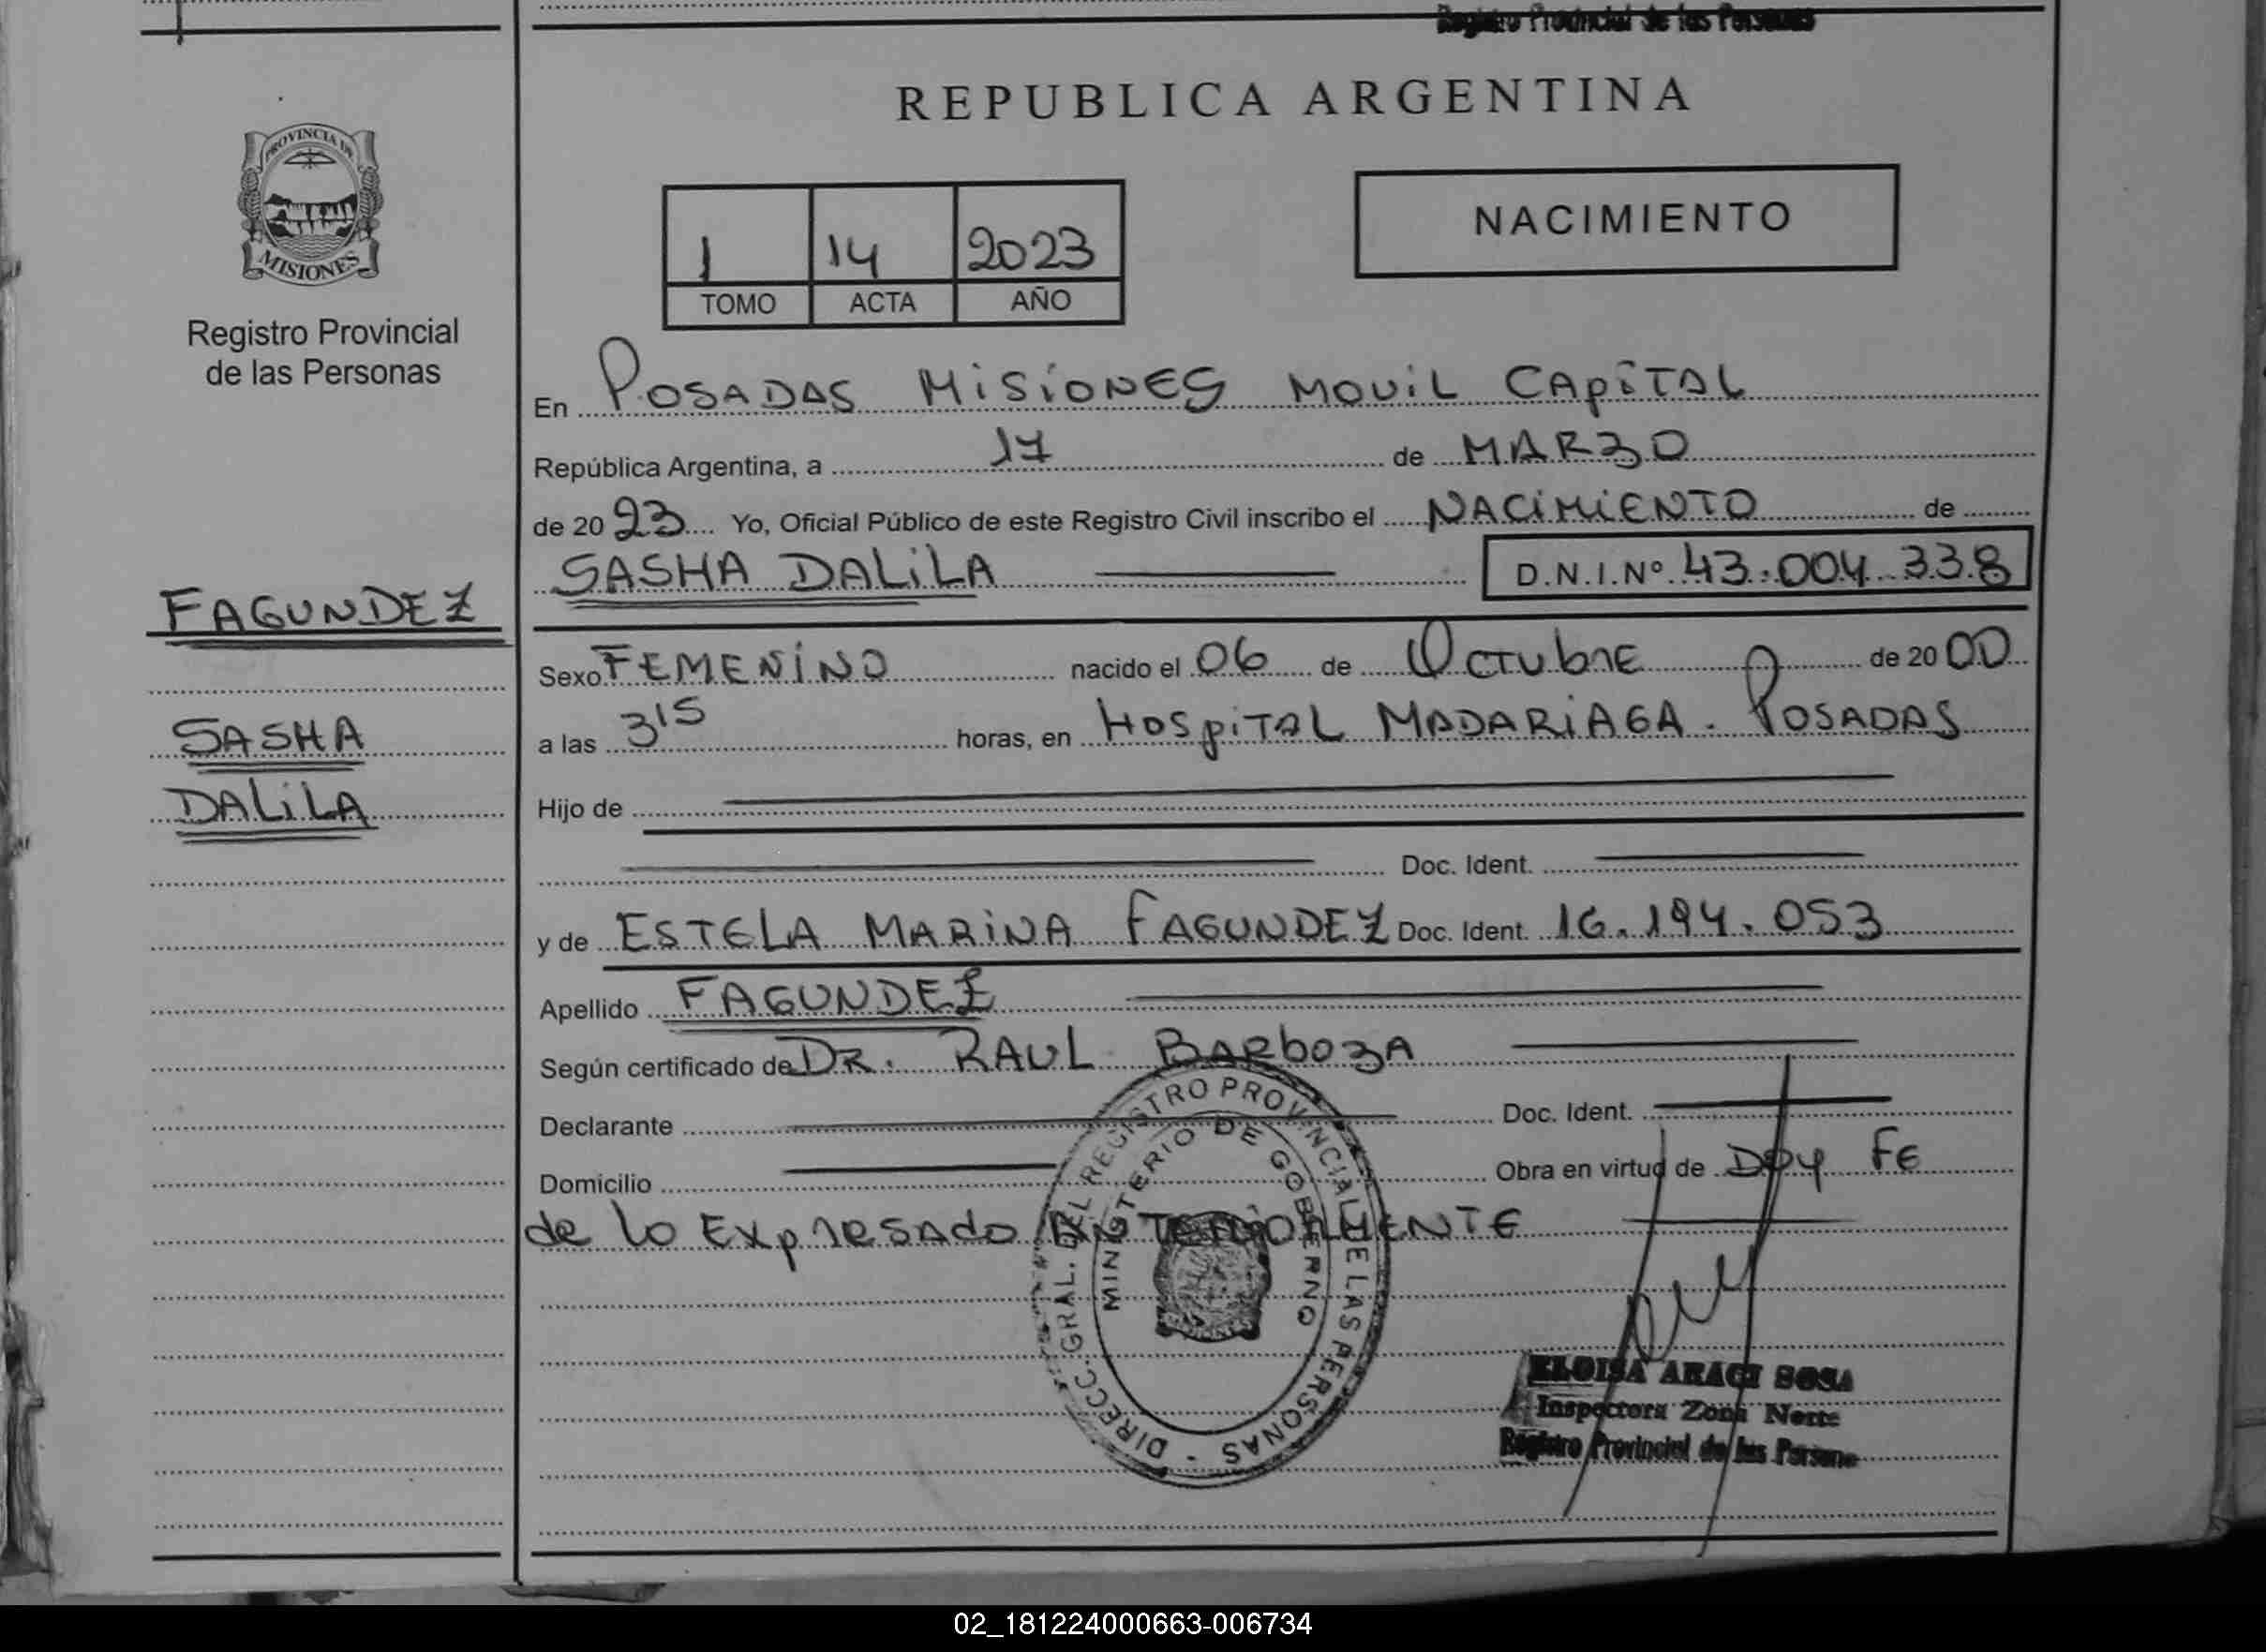 Registro Provincial de las Personas
REPUBLICA ARGENTINA
PROVINCIA DE
MISIONES
Registro Provincial
de las Personas
NACIMIENTO
1 14 2023
TOMO ACTA AÑO
En POSADAS MISIONES MOVIL CAPITAL
República Argentina, a 17 de MARZO
de 2023 Yo, Oficial Público de este Registro Civil inscribo el NACIMIENTO de
SASHA DALILA D.N.I.Nº 43.004.338
FAGUNDEZ
SASHA
DALILA
Sexo FEMENINO nacido el 06 de Octubre de 2000
a las 315 horas, en HOSPITAL MADARIAGA. POSADAS
Hijo de
Doc. Ident.
y de ESTELA MARINA FAGUNDEZ Doc. Ident. 16.194.053
Apellido FAGUNDEZ
Según certificado de DR. RAUL BARBOZA
Declarante Doc. Ident.
Domicilio Obra en virtud de Doy FE
de lo Expresado ANTERIORMENTE
DIRECC. GRAL. DEL REGISTRO PROVINCIAL DE LAS PERSONAS -
MINISTERIO DE GOBIERNO
ELOISA ARACI SOSA
Inspectora Zona Norte
Registro Provincial de las Persona
02_181224000663-006734